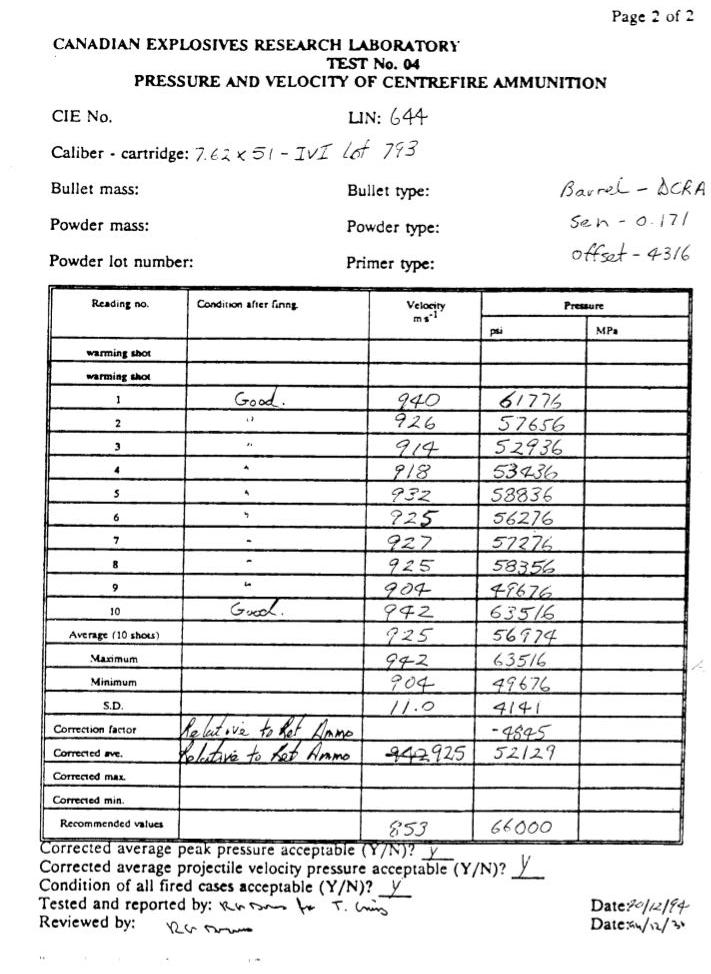 Page 2 of 2
CANADIAN EXPLOSIVES RESEARCH LABORATORY
TEST No. 04
PRESSURE AND VELOCITY OF CENTREFIRE AMMUNITION
CIE No. LIN: 644
Caliber - cartridge: 7.62 x 51 - IVI Lot 793
Bullet mass: Bullet type: Barrel - DCRA
Powder mass: Powder type: Sen - 0.171
Powder lot number: Primer type: Offset - 4316
Reading no. Condition after firing Velocity Pressure
m s-1
psi MPa
warming shot
warming shot
1 Good. 940 61776
2 " 926 57656
3 " 914 52936
4 " 918 53436
5 " 932 58836
6 " 925 56276
7 " 927 57276
8 " 925 58356
9 " 904 49676
10 Good. 942 63516
Average (10 shots) 925 56974
Maximum 942 63516
Minimum 904 49676
S.D. 11.0 4141
Correction factor Relative to Ref Ammo -4845
Corrected ave. Relative to Ref Ammo 942 925 52129
Corrected max.
Corrected min.
Recommended values 853 66000
Corrected average peak pressure acceptable (Y/N)? Y
Corrected average projectile velocity pressure acceptable (Y/N)? Y
Condition of all fired cases acceptable (Y/N)? Y
Tested and reported by: for T. Date: /12/94
Reviewed by: Date: /12/